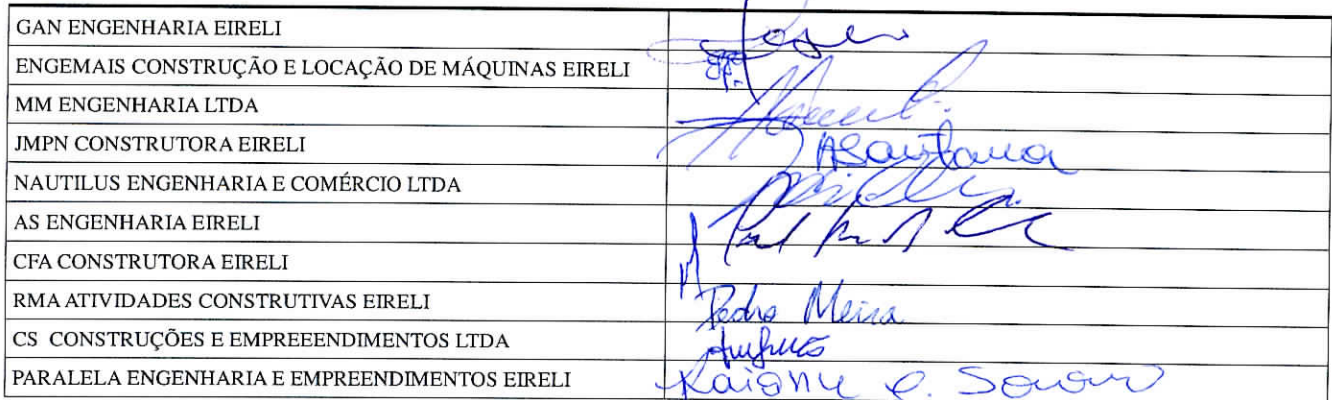 GAN ENGENHARIA EIRELI
ENGEMAIS CONSTRUÇÃO E LOCAÇÃO DE MÁQUINAS EIRELI
MM ENGENHARIA LTDA
JMPN CONSTRUTORA EIRELI ASantana
NAUTILUS ENGENHARIA E COMÉRCIO LTDA
AS ENGENHARIA EIRELI
CFA CONSTRUTORA EIRELI
RMA ATIVIDADES CONSTRUTIVAS EIRELI Pedro Meira
CS CONSTRUÇÕES E EMPREEENDIMENTOS LTDA
PARALELA ENGENHARIA E EMPREENDIMENTOS EIRELI